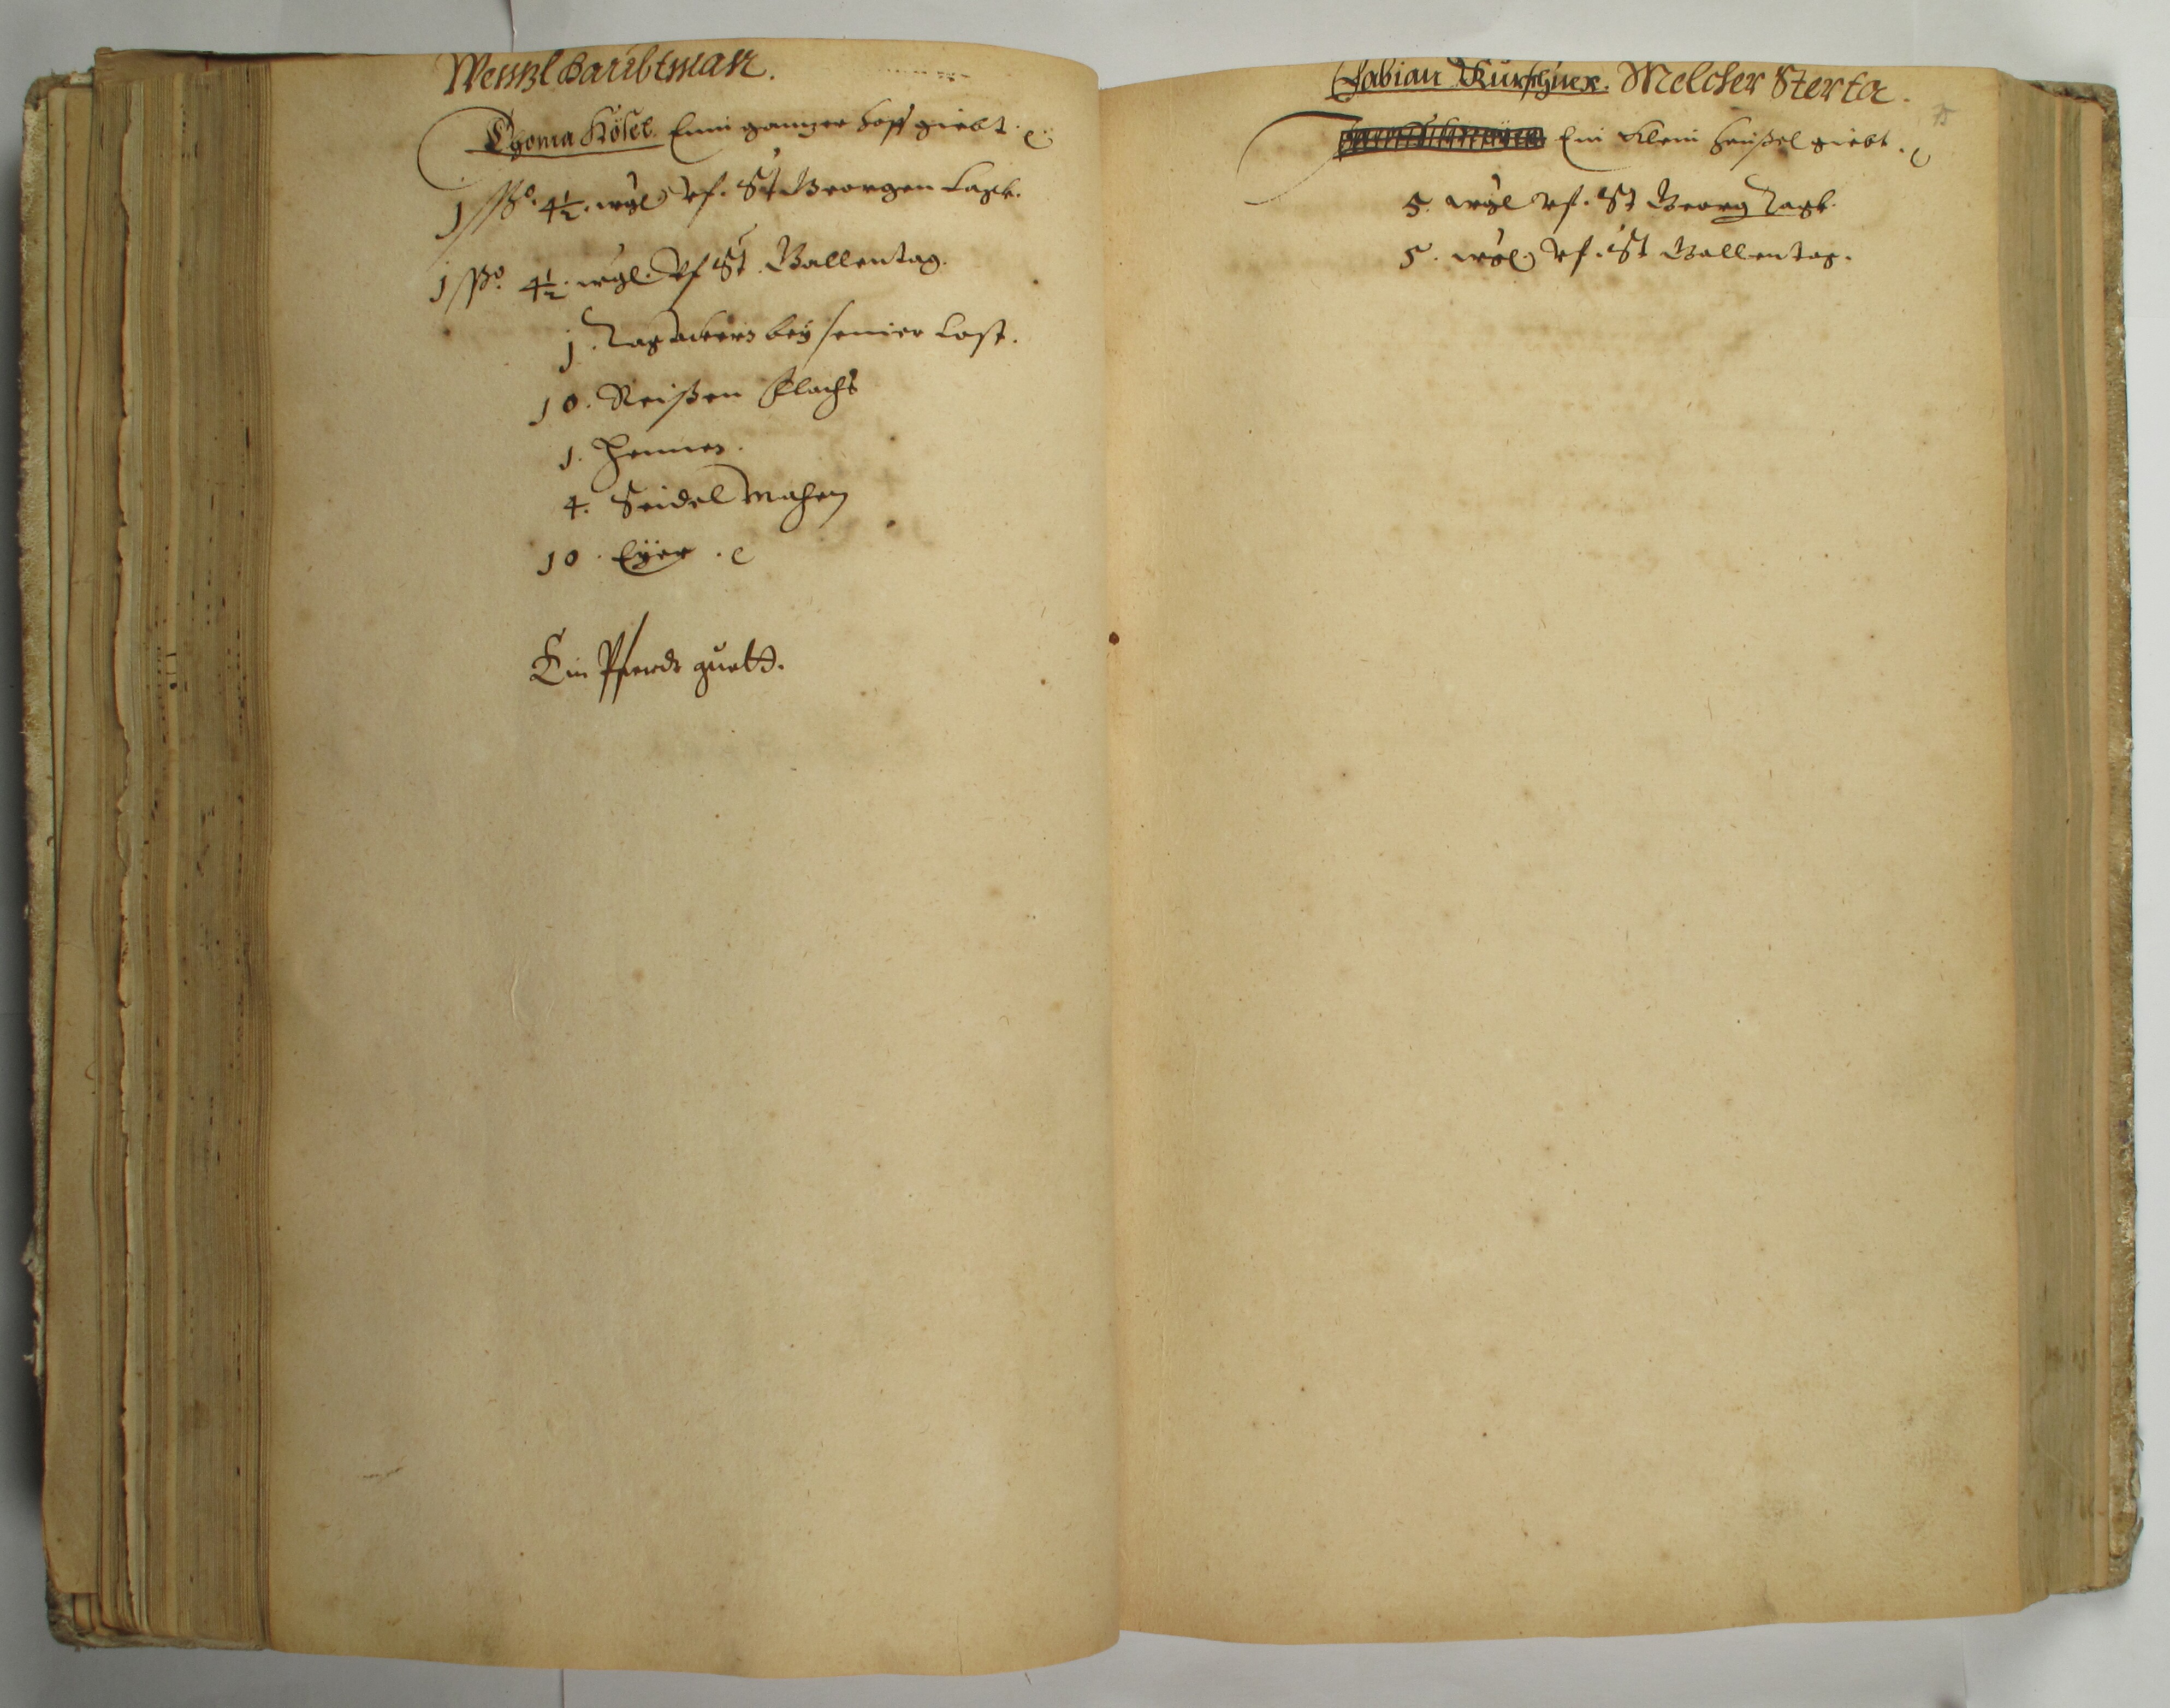 Wentzl Haubtman.
Thoma Kösel. Einn gantzer hoff giebt.
1 ßo. 4½. wgl. vf. St Georgen tagk.
1 ßo. 4½. wgl. vf St. Gallentag.
1. Tag ackern bey seiner Cost.
10. Reisten Flachs
1. Hennen.
4. Seidel Mahen
10. Eyer.
Ein Pferdt guett.
Fabian Kürschner. Melcher Sterta.
Ein Klein heüßel giebt.
5. wgl vf. St Georg Tagk.
5. wgl. vf. St Gallentag.